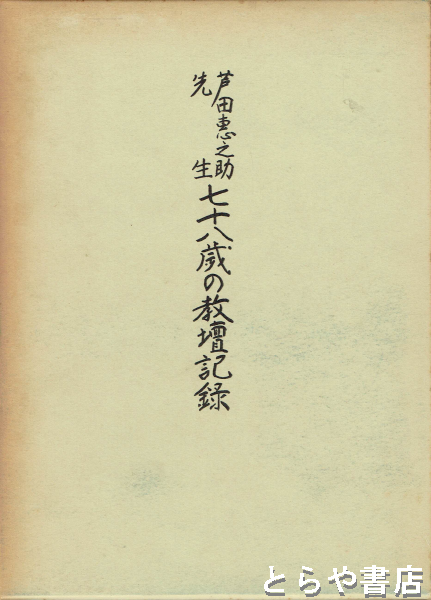 芦田惠之助
先生
七十八歳の教壇記録
とらや書店